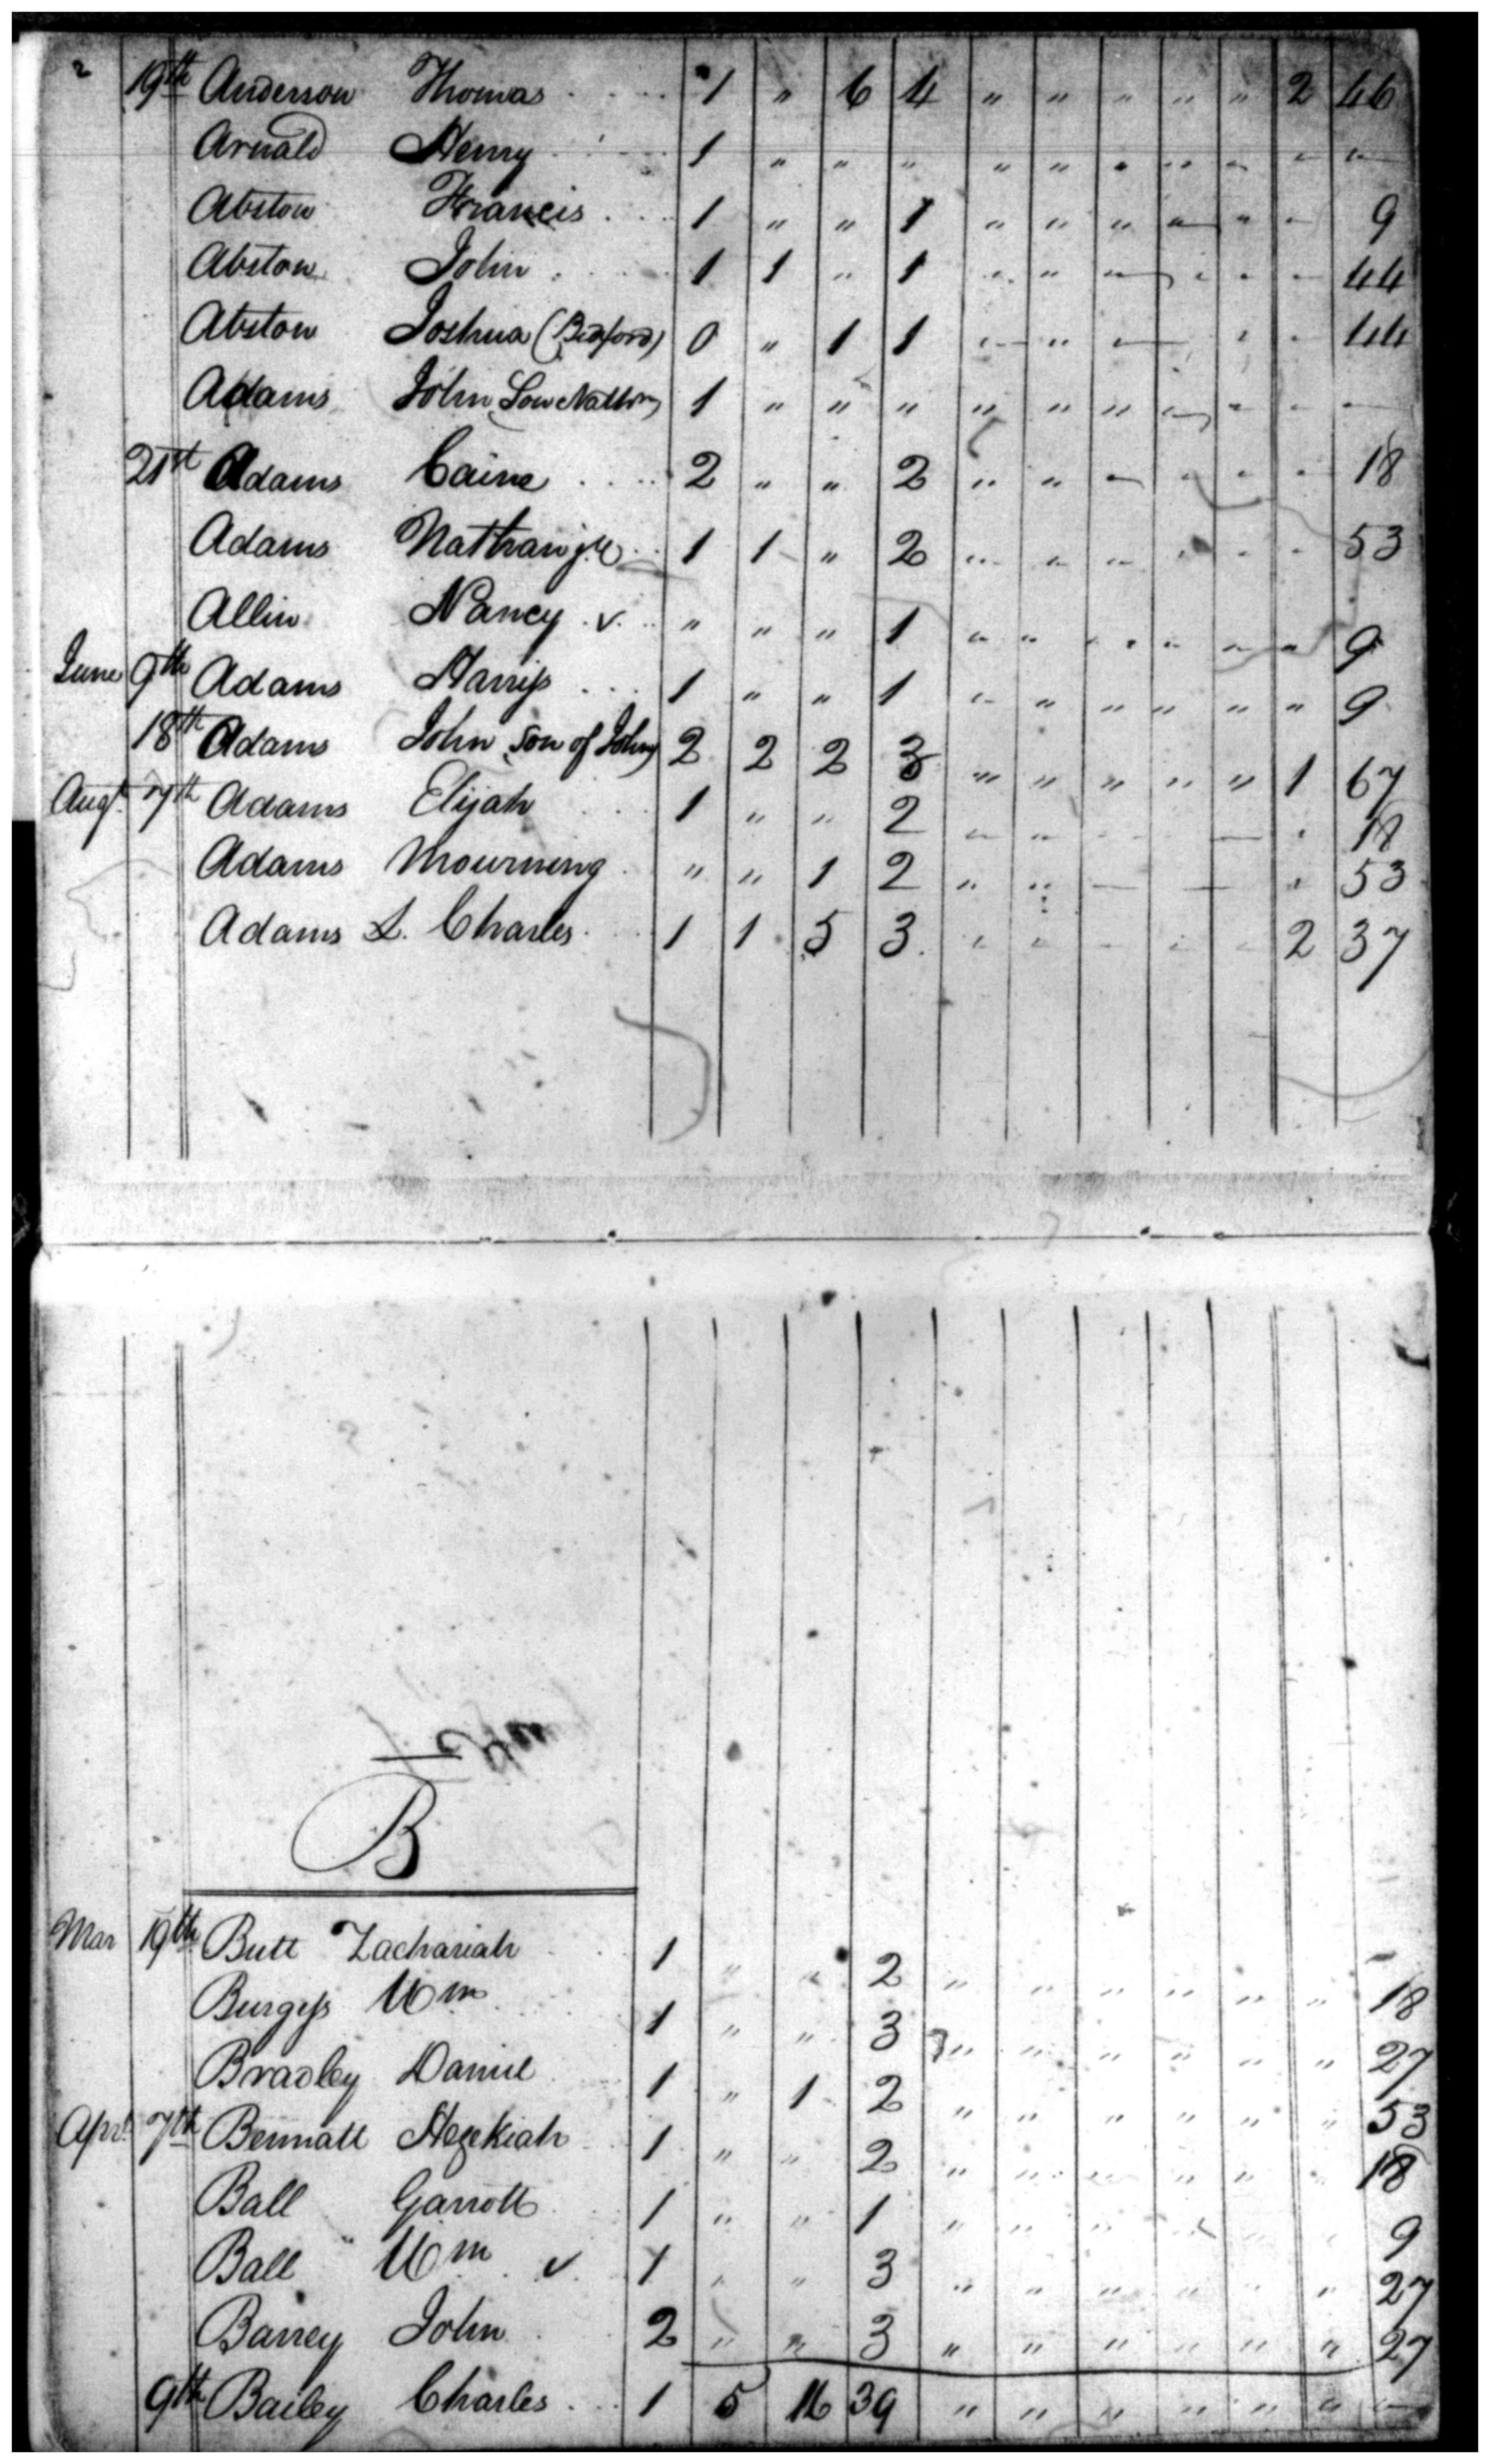 19th Anderson Thomas 1 " 6 4 " " " " " 2 46
Arnald Henry 1 " " " " " " " " - -
Abston Francis 1 " " 1 " " " " " - 9
Abston John 1 1 " 1 " " " " - - 44
Abston Joshua (Bedford) 0 " 1 1 " " - - - 44
Adams John Son Nathan 1 " " " " " " " - - -
21st Adams Caine 2 " " 2 " " - - - - 18
Adams Nathan jr 1 1 " 2 " " " - - - 53
Allin Nancy v " " " 1 " " " " " " 9
June 9th Adams Harriss 1 " " 1 " " " " " " 9
18th Adams John son of John 2 2 2 3 " " " " " 1 67
Augt 7th Adams Elijah 1 " " 2 " " - - - 18
Adams Mourning " " 1 2 " " - - - 53
Adams S. Charles 1 1 5 3 " " - " " 2 37
B
Mar 19th Butt Zachariah 1 " " 2 " " " " " " 18
Burgess Wm 1 " " 3 " " " " " " 27
Bradley Daniel 1 " 1 2 " " " " " " 53
Aprl 7th Bennatt Hezekiah 1 " " 2 " " " " " " 18
Ball Garrott 1 " " 1 " " " " 9
Ball Wm v 1 " " 3 " " " " " " 27
Barrey John 2 " " 3 " " " " " " 27
9th Bailey Charles 1 5 16 39 " " " " " " -